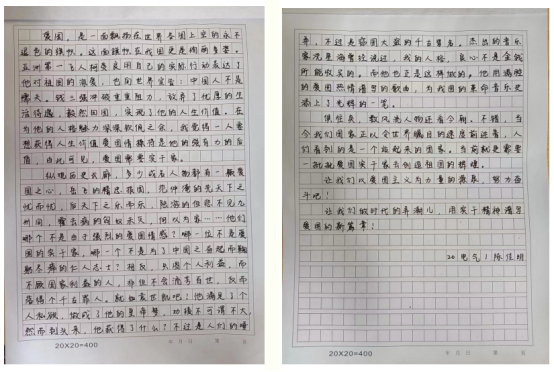 爱国,是一面飘扬在世界各国上空的永不
褪色的旗帜。这面旗帜在我国更是绚丽多姿。
亚洲第一飞人柯受良用自己的实际行动表达了
他对祖国的激爱,也向世界宣告:中国人不是
懦夫。钱三强冲破重重阻力,放弃了优厚的生
活待遇,毅然回国,实现了他的人生价值。在
为他的人格魅力深深钦佩之余,我觉得一个要
想获得人生价值爱国情操将是他的强有力的后
盾,由此可见,爱国都要实干家。
纵观历史云廊,多少成名人物都有一颗爱
国之心,岳飞的精忠报国,范仲淹的先天下之
忧而忧,后天下之乐而乐,陆游的但悲不见九
州同,霍去病的匈奴未灭,何以为家……他们
哪个不是出于强烈的爱国情感?哪一位不是爱
国的实干家,哪一个不是为了中国之奋起而鞠
躬尽瘁的仁人志士?相反,只图个人利益,而
不顾国家利益的人,非但不会流芳百世,反而
落得个千古罪人。就如袁世凯吧!他满足了个
人私欲,做成了他的皇帝梦,功绩不可谓不大,
然而到头来,他获得了什么?不过是人们的唾
弃,不过是窃国大盗的千古骂名。杰出的音乐
家冼星海曾经说过,我的人格,良心不是金钱
所能收买的。而他也正是这样做的。他用满腔
的爱国热情谱写的歌曲,为我国的革命音乐史
添上了光辉的一笔。
俱往矣,数风流人物还看今朝。不错,当
今我们国家正以令世界瞩目的速度前进着,人
们看到的是一个站起来的国家。当前就更需要
一批批爱国实干家去创造祖国的辉煌。
让我们以爱国主义为力量的源泉,努力奋
斗吧!
让我们做时代的弄潮儿,用实干精神谱写
爱国的新篇章!
20电气1 陈佳
20X20=400
年 月 日 第 页
20X20=400
年 月 日 第 页